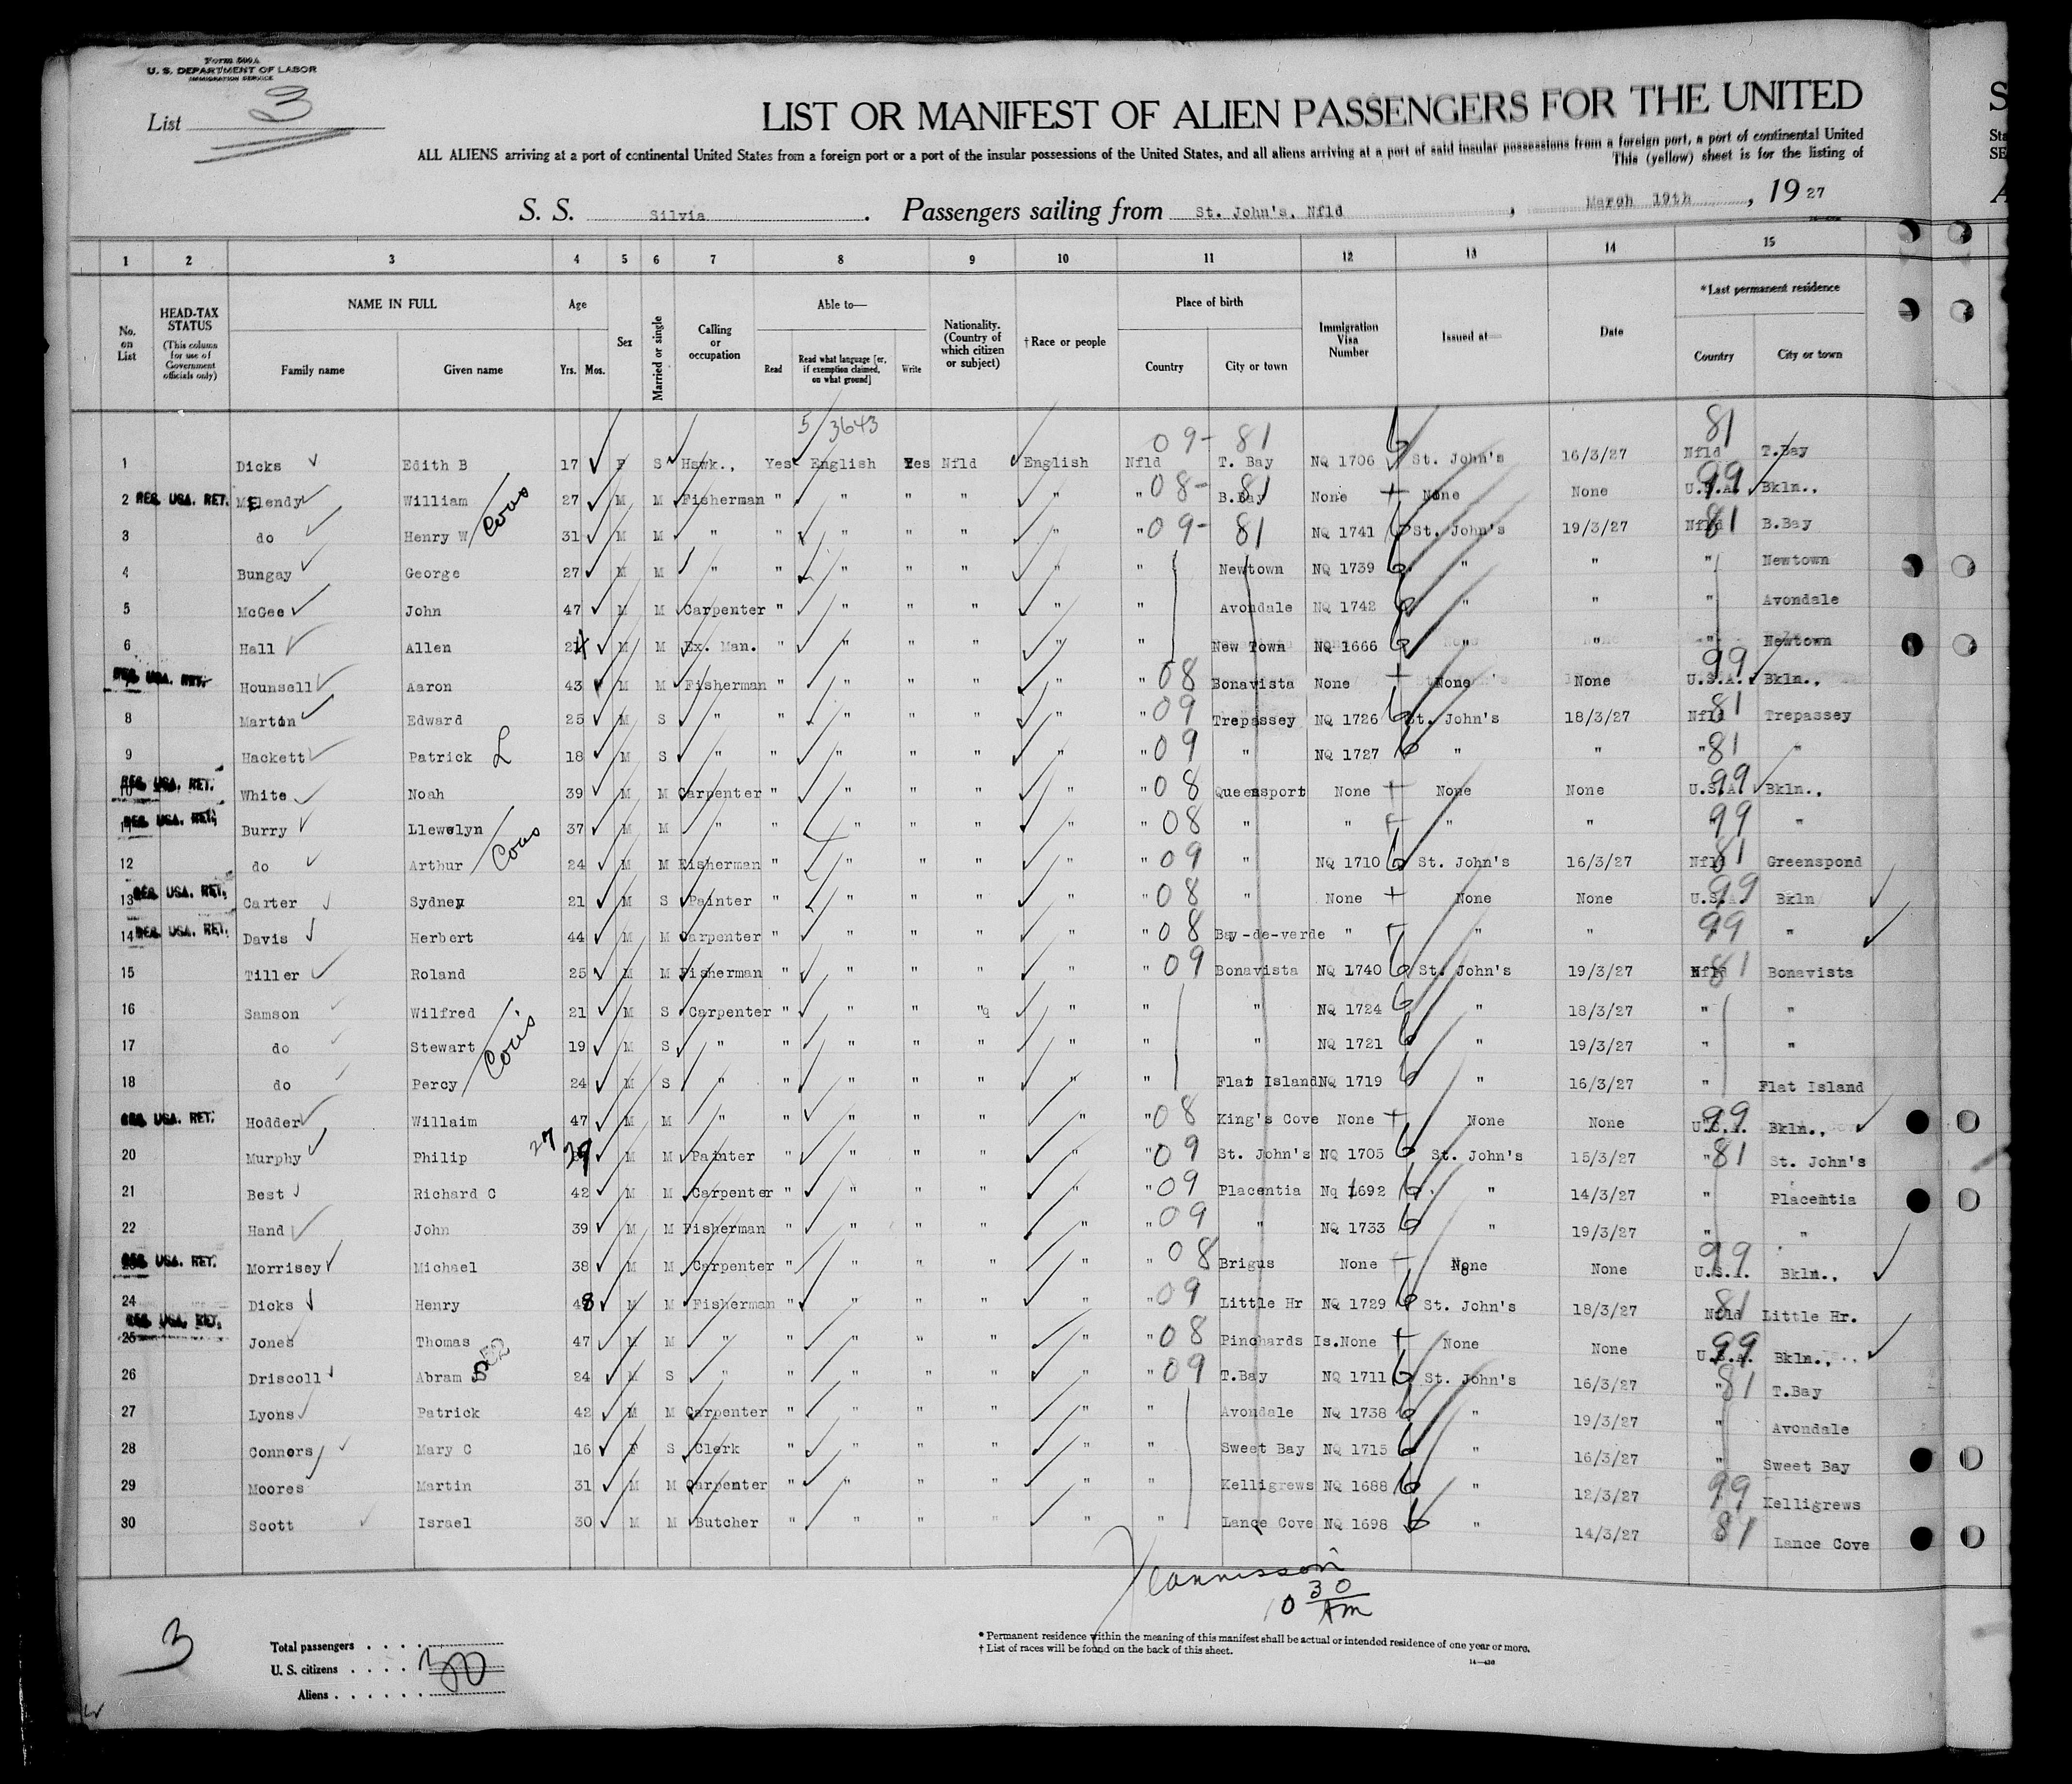 Form 500A
U. S. DEPARTMENT OF LABOR
IMMIGRATION SERVICE
List 3
LIST OR MANIFEST OF ALIEN PASSENGERS FOR THE UNITED
ALL ALIENS arriving at a port of continental United States from a foreign port or a port of the insular possessions of the United States, and all aliens arriving at a port of said insular possessions from a foreign port, a port of continental United
This (yellow) sheet is for the listing of
S. S. Silvia . Passengers sailing from St. John's, Nfld , March 19th , 19 27
1 2 3 4 5 6 7 8 9 10 11 12 13 14 15
No. on List
HEAD-TAX STATUS (This column for use of Government officials only)
NAME IN FULL Family name Given name
Age Yrs. Mos.
Sex
Married or single
Calling or occupation
Able to— Read Read what language [or, if exemption claimed, on what ground] Write
Nationality. (Country of which citizen or subject)
† Race or people
Place of birth Country City or town
Immigration Visa Number
Issued at—
Date
* Last permanent residence Country City or town
5 3643 09- 81 81
1 Dicks Edith B 17 F S Hswk., Yes English Yes Nfld English Nfld T. Bay NQ 1706 St. John's 16/3/27 Nfld T.Bay
2 REG. USA. RET. MElendy William 27 M M Fisherman " " " " " " 08- B.Bay 81 None None None U.S.A. 99 Bkln.,
3 do Henry W Cous 31 M M " " " " " " " 09- 81 NQ 1741 St. John's 19/3/27 Nfld 81 B.Bay
4 Bungay George 27 M M " " " " " " " Newtown NQ 1739 " " " Newtown
5 McGee John 47 M M Carpenter " " " " " " Avondale NQ 1742 " " " Avondale
6 Hall Allen 24 M M Ex. Man. " " " " " " New Town NQ 1666 " " " Newtown
REG. USA. RET. Hounsell Aaron 43 M M Fisherman " " " " " " 08 Bonavista None None None U.S.A. 99 Bkln.,
8 Martin Edward 25 M S " " " " " " " 09 Trepassey NQ 1726 St. John's 18/3/27 Nfld 81 Trepassey
9 Hackett Patrick L 18 M S " " " " " " " 09 " NQ 1727 " " " 81 "
10 REG. USA. RET. White Noah 39 M M Carpenter " " " " " " 08 Queensport None None None U.S.A. 99 Bkln.,
11 REG. USA. RET. Burry Llewelyn 37 M M " " " " " " " 08 " " " " 99 "
12 do Arthur Cous 24 M M Fisherman " " " " " " 09 " NQ 1710 St. John's 16/3/27 Nfld 81 Greenspond
13 REG. USA. RET. Carter Sydney 21 M S Painter " " " " " " 08 " None None None U.S.A. 99 Bkln
14 REG. USA. RET. Davis Herbert 44 M M Carpenter " " " " " " 08 Bay-de-verde " " " 99 "
15 Tiller Roland 25 M M Fisherman " " " " " " 09 Bonavista NQ 1740 St. John's 19/3/27 Nfld 81 Bonavista
16 Samson Wilfred 21 M S Carpenter " " " " " " " NQ 1724 " 18/3/27 " "
17 do Stewart 19 M S " " " " " " " " NQ 1721 " 19/3/27 " "
18 do Percy Cous 24 M S " " " " " " " Flat Island NQ 1719 " 16/3/27 " Flat Island
REG. USA. RET. Hodder Willaim 47 M M " " " " " " " 08 King's Cove None None None U.S.A. 99 Bkln.,
20 Murphy Philip 27 29 M M Painter " " " " " " 09 St. John's NQ 1705 St. John's 15/3/27 " 81 St. John's
21 Best Richard C 42 M M Carpenter " " " " " " 09 Placentia Nq 1692 " 14/3/27 " Placemtia
22 Hand John 39 M M Fisherman " " " " " " 09 " NQ 1733 " 19/3/27 " "
23 REG. USA. RET. Morrisey Michael 38 M M Carpenter " " " " " " 08 Brigus None None None U.S.A. 99 Bkln.,
24 Dicks Henry 48 M M Fisherman " " " " " " 09 Little Hr NQ 1729 St. John's 18/3/27 Nfld 81 Little Hr.
25 REG. USA. RET. Jones Thomas 47 M M " " " " " " " 08 Pinchards Is. None None None U.S.A. 99 Bkln.,
26 Driscoll Abram 24 M S " " " " " " " 09 T.Bay NQ 1711 St. John's 16/3/27 " 81 T.Bay
27 Lyons Patrick 42 M M Carpenter " " " " " " Avondale NQ 1738 " 19/3/27 " Avondale
28 Conners Mary C 16 F S Clerk " " " " " " Sweet Bay NQ 1715 " 16/3/27 " Sweet Bay
29 Moores Martin 31 M M Carpenter " " " " " " Kelligrews NQ 1688 " 12/3/27 99 Kelligrews
30 Scott Israel 30 M M Butcher " " " " " " Lance Cove NQ 1698 " 14/3/27 81 Lance Cove
10 30 AM
3
Total passengers . . . .
U. S. citizens . . . . 30
Aliens . . . . . .
* Permanent residence within the meaning of this manifest shall be actual or intended residence of one year or more.
† List of races will be found on the back of this sheet.